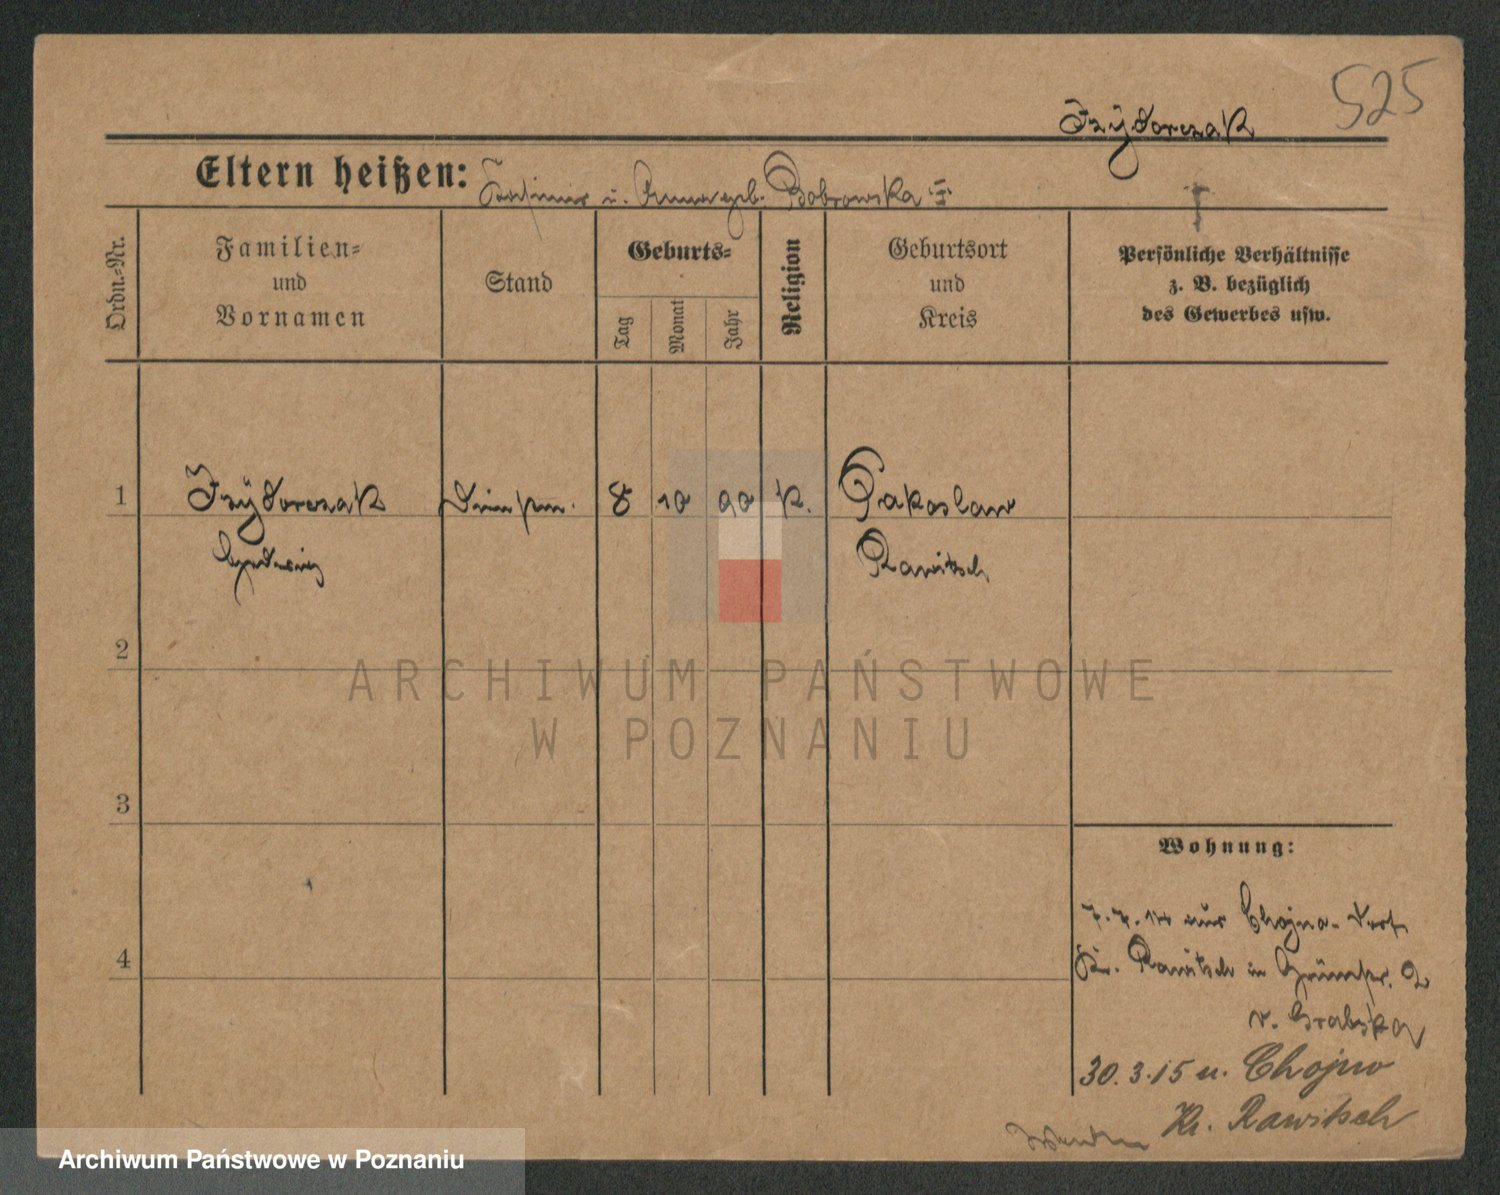 525
Izÿdorczak
Eltern heißen: Kasimir u. Anna geb. Bobrowska
Ordn.-Nr.
Familien-
und
Vornamen
Stand
Geburts-
Tag
Monat
Jahr
Religion
Geburtsort
und
Kreis
Persönliche Verhältnisse
z. B. bezüglich
des Gewerbes usw.
1 Izÿdorczak Dienstm. 8 10 90 k. Pakoslaw
Hedwig Rawitsch
2
3
4
Wohnung:
7.7.14 aus Chojno-Dorf
Kr. Rawitsch in Grünstr. 2
v. Grabska
30.3.15 n. Chojno
Kr. Rawitsch
ARCHIWUM PAŃSTWOWE
W POZNANIU
Archiwum Państwowe w Poznaniu